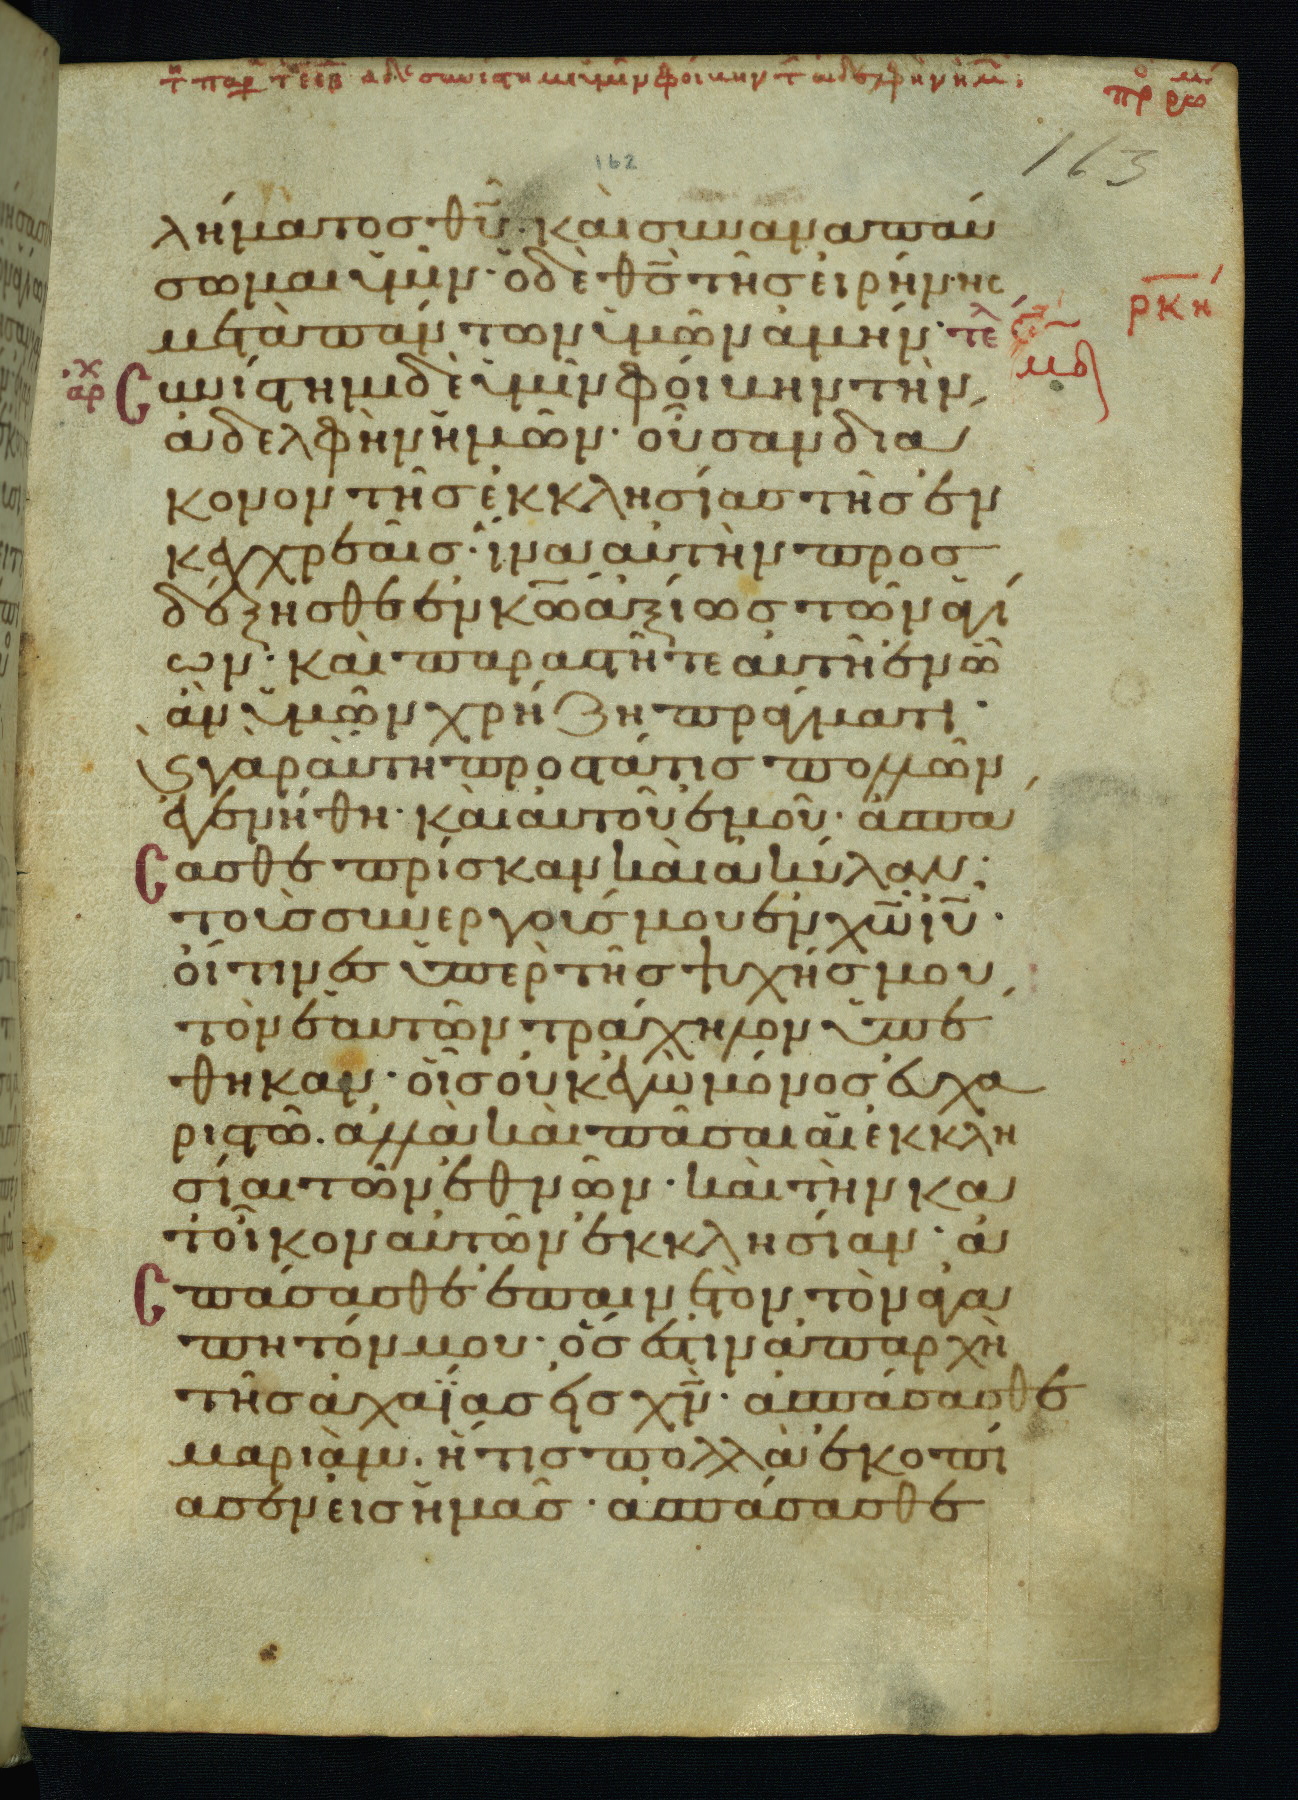 162
163
λήματος θυ̅· καὶ συναναπαύ
σωμαι ὑμῖν· ὁ δὲ θς̅ τῆς εἰρήνης
μετὰ πάντων ὑμῶν ἀμήν· τελ
ρκη
αρχ
Συνίστημι δὲ ὑμῖν φοίβην τὴν
ἀδελφὴν ἡμῶν· οὖσαν δια
κονον τῆς ἐκκλησίας τῆς ἐν
κεγχρεαῖς· ἵνα αὐτὴν προσ
δέξησθε ἐν κω̅ ἀξίως τῶν ἁγί
ων· καὶ παραστῆτε αὐτῆ ἐν ὧ
ἂν ὑμῶν χρήζη πράγματι·
καὶ γὰρ αὕτη προστάτις πολλῶν
ἐγενήθη· καὶ αὐτοῦ ἐμοῦ· ἀσπά
σασθε πρίσκαν καὶ ἀκύλαν·
τοὺς συνεργούς μου ἐν χω̅ ιυ̅·
οἵτινες ὑπὲρ τῆς ψυχῆς μου
τὸν ἑαυτῶν τράχηλον ὑπέ
θηκαν· οἷς οὐκ ἐγὼ μόνος εὐχα
ριστῶ. ἀλλὰ καὶ πᾶσαι αἱ ἐκκλη
σίαι τῶν ἐθνῶν· καὶ τὴν κα
τ οἶκον αὐτῶν ἐκκλησίαν· ἀ
σπάσασθε ἐπαινετὸν τὸν ἀγα
πητόν μου· ὅς ἐστιν ἀπαρχὴ
τῆς ἀχαΐας εἰς χν̅· ἀσπάσασθε
μαριὰμ. ἥτις πολλὰ ἐκοπί
ασεν εἰς ἡμᾶς· ἀσπάσασθε